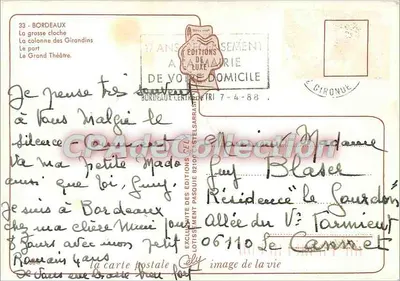 33 - BORDEAUX
La grosse cloche
La colonne des Girondins
Le port
Le Grand Théâtre.
A LA MAIRIE
DE VOTRE DOMICILE
BORDEAUX CENTRE DE TRI 7-4-88
GIRONDE
EDITIONS
DE
LUXE
Je pense très souvent
à Vous Malgré le
silence Comment
va ma petite Mado
ainsi que toi, Guy.
Je suis à Bordeaux
chez ma chère Mimi pour
8 jours avec mon petit
Romain 4 ans
Je vous embrasse bien fort
Monsieur Madame
Guy Blaser
Résidence le Gourdon
Allée du Vx
06110 Le Cannet
la carte postale Cély image de la vie
CPACollection